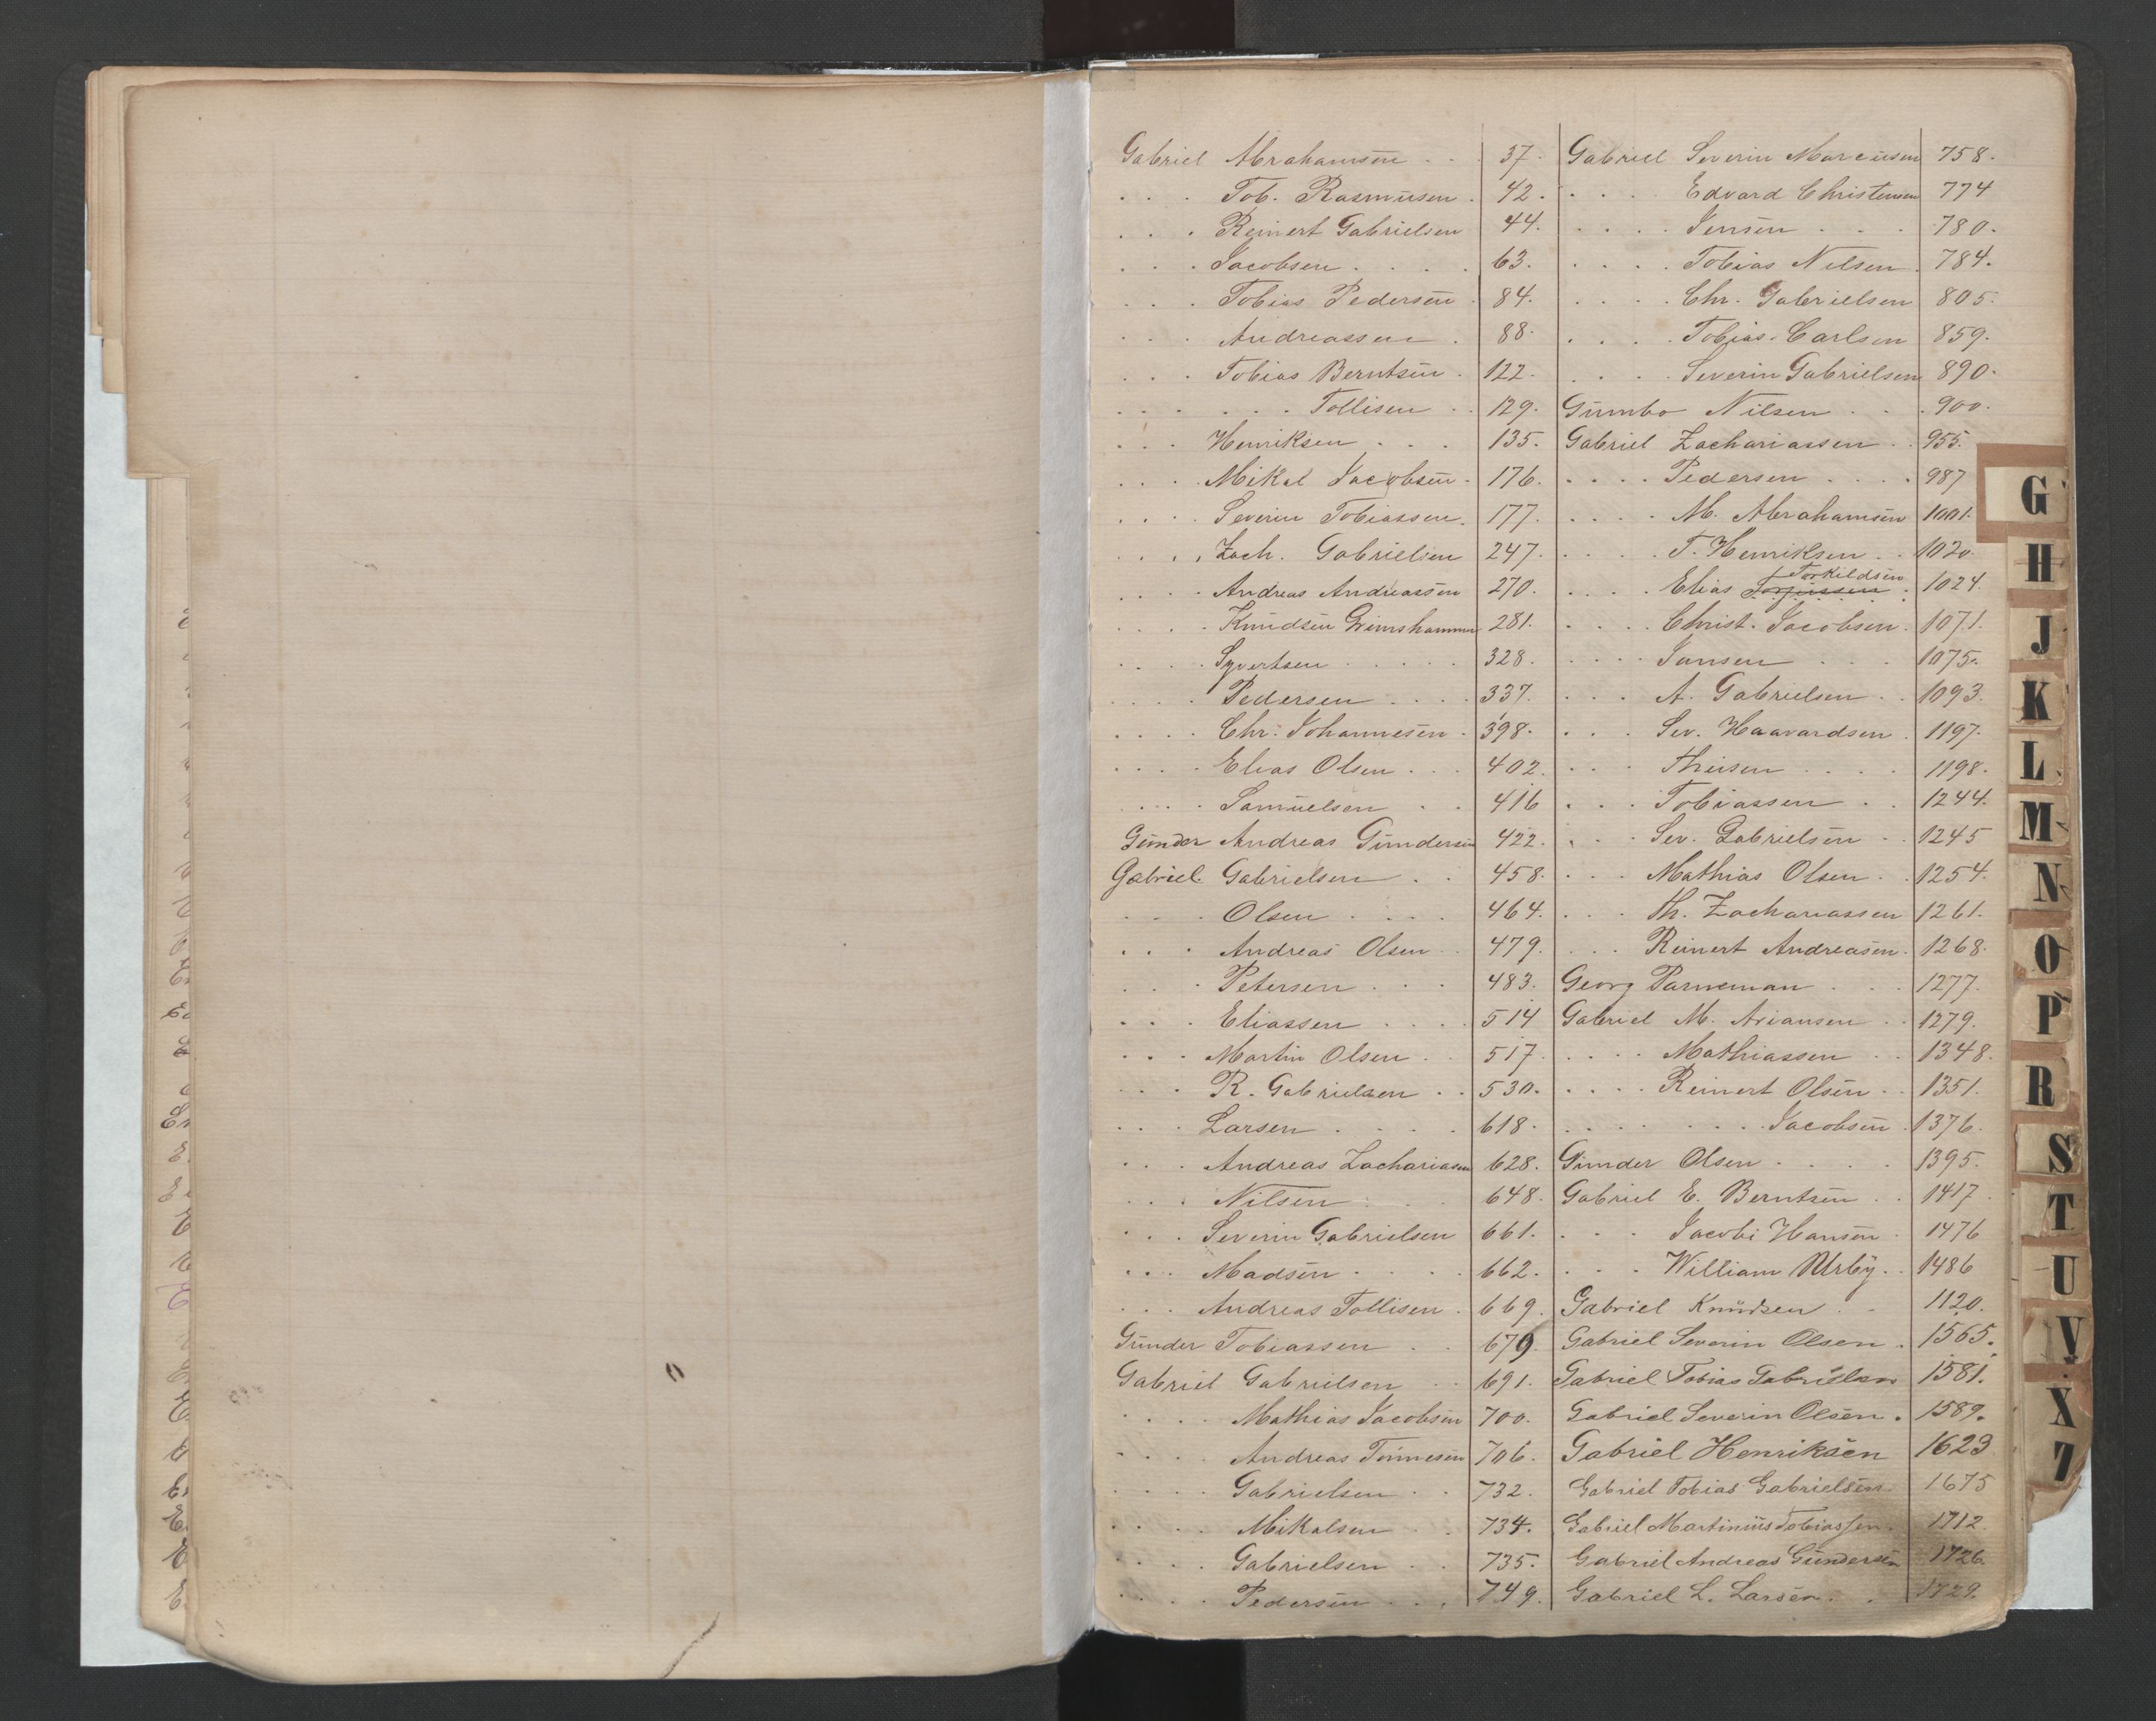 Gabriel Abrahamsen . . . 37.
. . . Tob. Rasmusen . 42.
. . . Reinert Gabrielsen 44.
. . . Jacobsen . . . . 63.
. . . Tobias Pedersen . 84.
. . . Andreassen . 88.
. . . Tobias Berntsen . 122.
. . . . . . Tollisen . . 129.
. . . Henriksen . . . 135.
. . . . Mikal Jacobsen . 176.
. . . . Severin Tobiassen. 177.
. . . . Zach. Gabrielsen 247.
. . . . Andreas Andreassen 270.
. . . . Knudsen Grimshammer 281.
. . . . Syvertsen . . . . . 328.
. . . . Pedersen . . . . 337.
. . . . Chr. Johannesen . 398.
. . . . Elias Olsen . . . 402.
. . . . Samuelsen . . 416
Gunder Andreas Gundersen 422.
Gabriel Gabrielsen . . 458.
. . . Olsen . . . . 464.
. . . Andreas Olsen . . 479.
. . . Petersen . . . 483.
. . . Eliassen . . . . 514
. . . Martin Olsen . . 517.
. . . R. Gabrielsen . . 530.
. . . Larsen . . . . 618.
. . . Andreas Zachariasen 628.
. . . Nilsen . . . 648.
. . . Severin Gabrielsen 661.
. . . Madsen . . . . 662.
. . . Andreas Tollisen . 669.
Gunder Tobiassen . . 679.
Gabriel Gabrielsen . . 691.
. . . . Mathias Jacobsen 700.
. . . . Andreas Tønnesen 706.
. . . . Gabrielsen . . 732.
. . . . Mikalsen . . 734.
. . . . Gabrielsen . . 735.
. . . . Pedersen . . . 749.
Gabriel Severin Marcusen 758.
. . . . Edvard Christensen 774
. . . . Jensen . . . 780.
. . . . Tobias Nilsen . 784.
. . . . Chr. Gabrielsen 805.
. . . . Tobias Carlsen 859.
. . . . Severin Gabrielsen 890.
Gumbo Nilsen . . . 900.
Gabriel Zachariassen . . 955.
. . . . Pedersen . . . . 987
. . . . M. Abrahamsen 1001.
. . . . T. Henriksen . . 1020.
. . . . Elias Torkildsen . 1024.
. . . . Christ. Jacobsen . 1071.
. . . . Jansen . . . 1075.
. . . A. Gabrielsen . . 1093.
. . . Sev. Haavardsen . 1197.
. . . Theisen . . . . 1198.
. . . Tobiassen . . 1244.
. . . Sev. Gabrielsen . . 1245
. . . Mathias Olsen . . 1254.
. . . Th. Zachariassen 1261.
. . . Reinert Andreasen . 1268.
Georg Parneman . . . 1277.
Gabriel M. Ariansen . . 1279.
. . . . Mathiassen . . 1348.
. . . . Reinert Olsen . . 1351.
. . . . . . . . Jacobsen . 1376.
Gunder Olsen . . . . 1395.
Gabriel E. Berntsen . . 1417
. . . Jacobi Hansen . 1476
. . . William Urby . . 1486
Gabriel Knudsen . . 1120.
Gabriel Severin Olsen . 1565.
Gabriel Tobias Gabrielsen 1581.
Gabriel Severin Olsen . 1589.
Gabriel Henriksen 1623
Gabriel Tobias Gabrielsen . 1675
Gabriel Martinius Tobiassen . 1712.
Gabriel Andreas Gundersen 1726.
Gabriel L. Larsen . . 1729.
G
H
J
K
L
M
N
O
P
R
S
T
U
V
X
Z